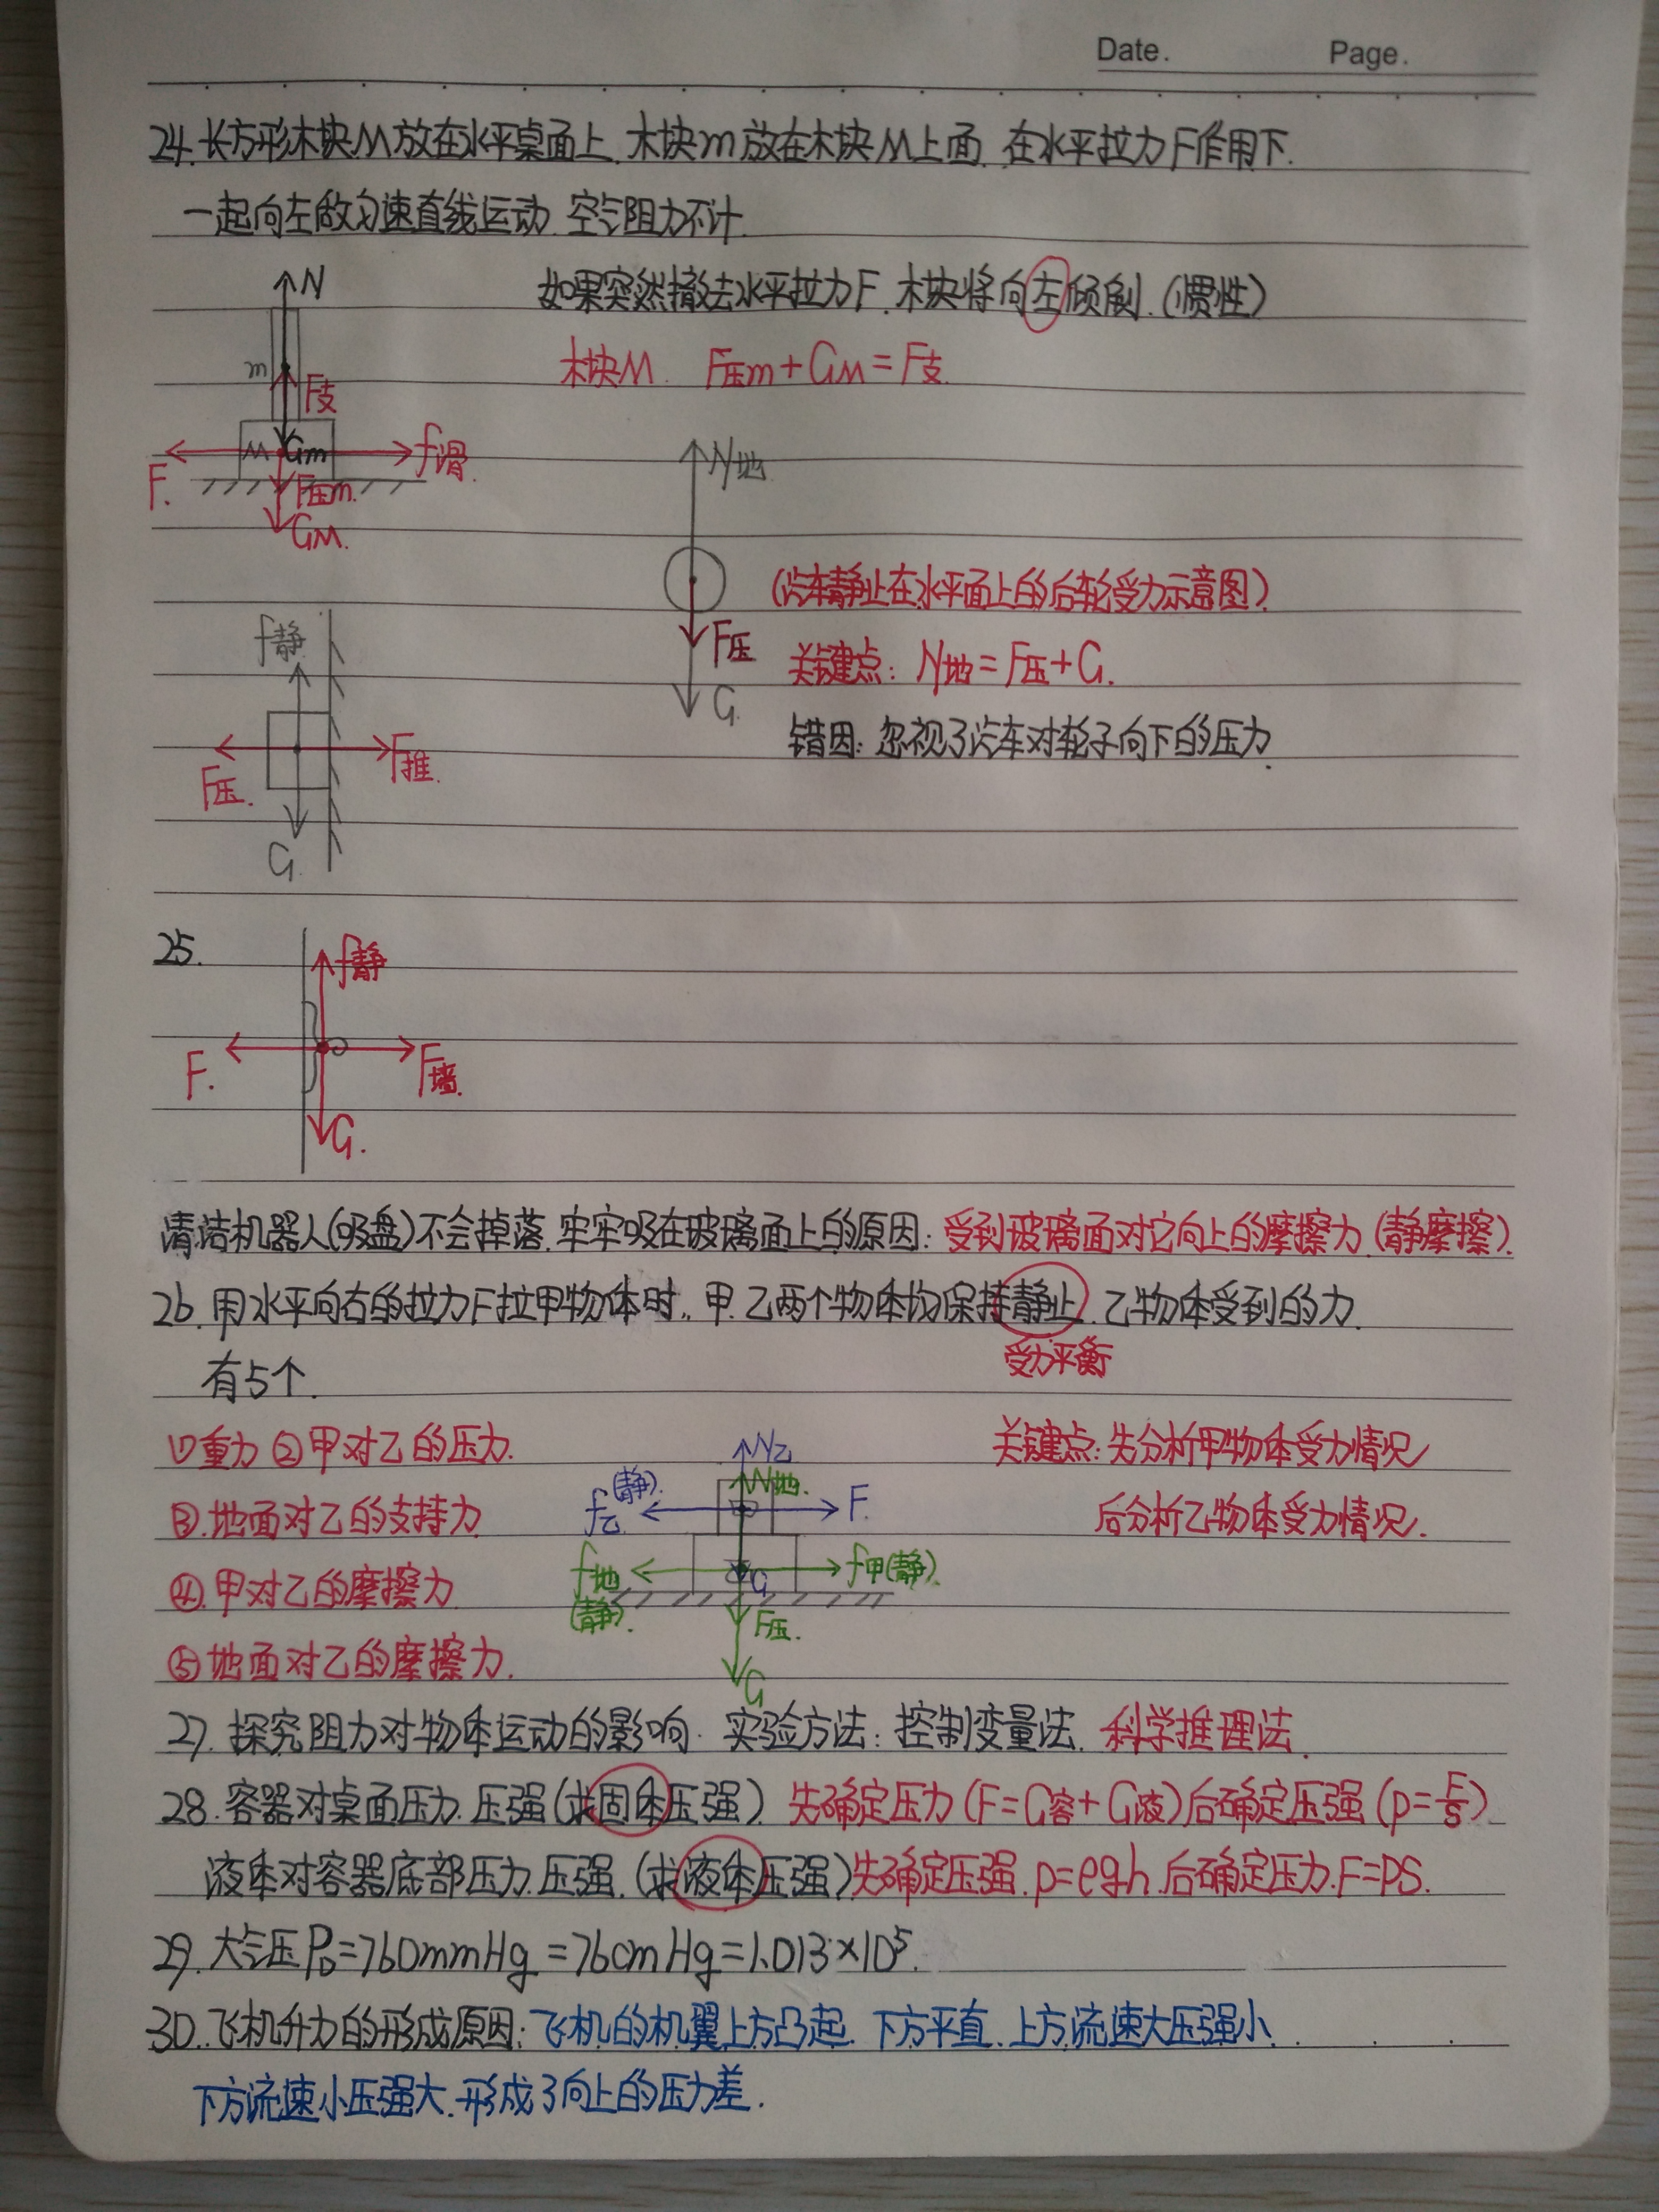 Date. Page.
24. 长方形木块M放在水平桌面上. 木块m放在木块M上面. 在水平拉力F作用下.
一起向左做匀速直线运动. 空气阻力不计.
N
如果突然撤去水平拉力F. 木块将向左倾倒. (惯性)
木块M. F压m+GM=F支.
m
F支
M
Gm
F.
f滑
F压m.
GM.
N地.
(汽车静止在水平面上的后轮受力示意图).
F压
关键点: N地=F压+G.
G.
错因: 忽视了汽车对轮子向下的压力.
f静
F推.
F压.
G
25.
f静
F.
F墙.
G.
清洁机器人(吸盘)不会掉落. 牢牢吸在玻璃面上的原因: 受到玻璃面对它向上的摩擦力 (静摩擦).
26. 用水平向右的拉力F拉甲物体时, 甲. 乙两个物体均保持静止. 乙物体受到的力.
受力平衡
有5个.
①重力 ②甲对乙的压力.
③.地面对乙的支持力
④.甲对乙的摩擦力
⑤地面对乙的摩擦力.
N乙
N地.
f乙(静).
F.
f地(静).
f甲(静).
G
F压.
G
关键点: 先分析甲物体受力情况
后分析乙物体受力情况.
27. 探究阻力对物体运动的影响. 实验方法: 控制变量法. 科学推理法.
28. 容器对桌面压力. 压强(求固体压强). 先确定压力 (F=G容+G液) 后确定压强 (p=F/S)
液体对容器底部压力. 压强. (求液体压强) 先确定压强. p=ρgh. 后确定压力. F=PS.
29. 大气压P₀=760mmHg=76cmHg=1.013×10⁵.
30. 飞机升力的形成原因: 飞机的机翼上方凸起. 下方平直. 上方流速大压强小.
下方流速小压强大. 形成了向上的压力差.